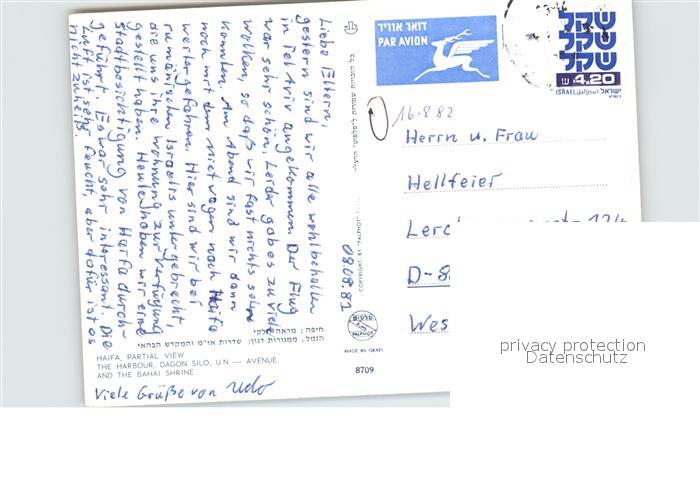 Liebe Eltern,
gestern sind wir alle wohlbehalten
in Tel Aviv angekommen. Der Flug
war sehr schön. Leider gab es zu viele
Wolken, so daß wir fast nichts sehen
konnten. Am Abend sind wir dann
noch mit dem Mietwagen nach Haifa
weitergefahren. Hier sind wir bei
rumänischen Israelis untergebracht,
die uns ihre Wohnung zur Verfügung
gestellt haben. Heute haben wir eine
Stadtbesichtigung von Haifa durch-
geführt. Es war sehr interessant. Die
Luft ist sehr feucht, aber dafür ist es
nicht zu heiß.
Viele Grüße von Udo
08.08.82
חיפה; מראה חלקי
הנמל, ממגורות דגון; שדרות או״מ והמקדש הבהאי
HAIFA, PARTIAL VIEW
THE HARBOUR, DAGON SILO, U.N — AVENUE
AND THE BAHAI SHRINE
כל הזכויות שמורות לפלפוט
COPYRIGHT BY "PALPHOT"
פלפוט
PALPHOT
MADE IN ISRAEL
8709
דואר אוויר
PAR AVION
שקל
שקל
שקל
ש 4.20
ISRAEL اسرائيل ישראל
16.8.82
Herrn u. Frau
Hellfeier
D-8
Wes
privacy protection
Datenschutz